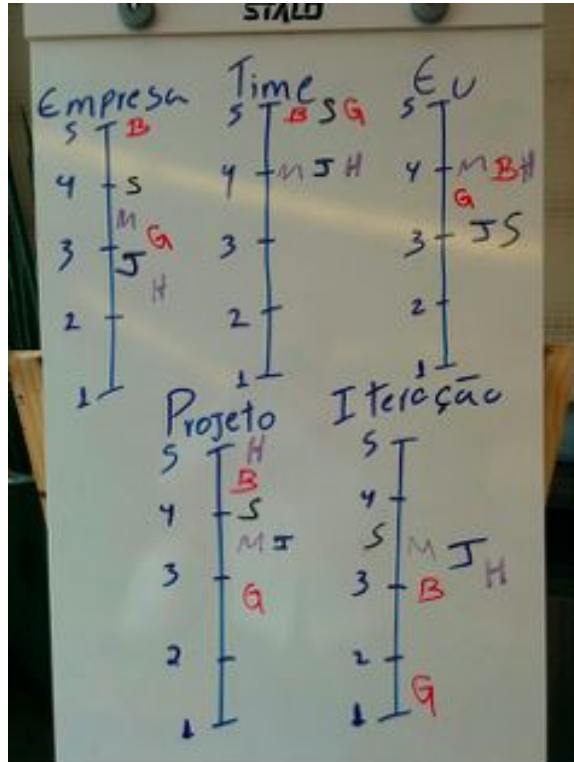 STALO
Empresa
5 B
4 S
M
G
3
J
H
2
1
Time
5 B S G
4 M J H
3
2
1
Eu
5
4 M B H
G
3 J S
2
1
Projeto
5 H
B
4 S
M J
3
G
2
1
Iteração
5
4
S M J
H
3 B
2
G
1